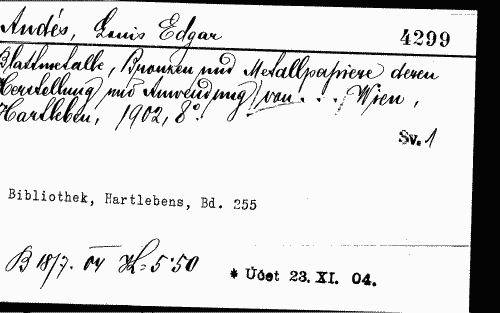 Andés, Louis Edgar
4299
Blattmetalle, Bronzen und Metallpapiere deren
Herstellung und Anwendung, von . . . , Wien,
Hartleben, 1902, 8°.
Sv. 1
Bibliothek, Hartlebens, Bd. 255
B 18/7. 04 K=5·50
* Účet 23. XI. 04.